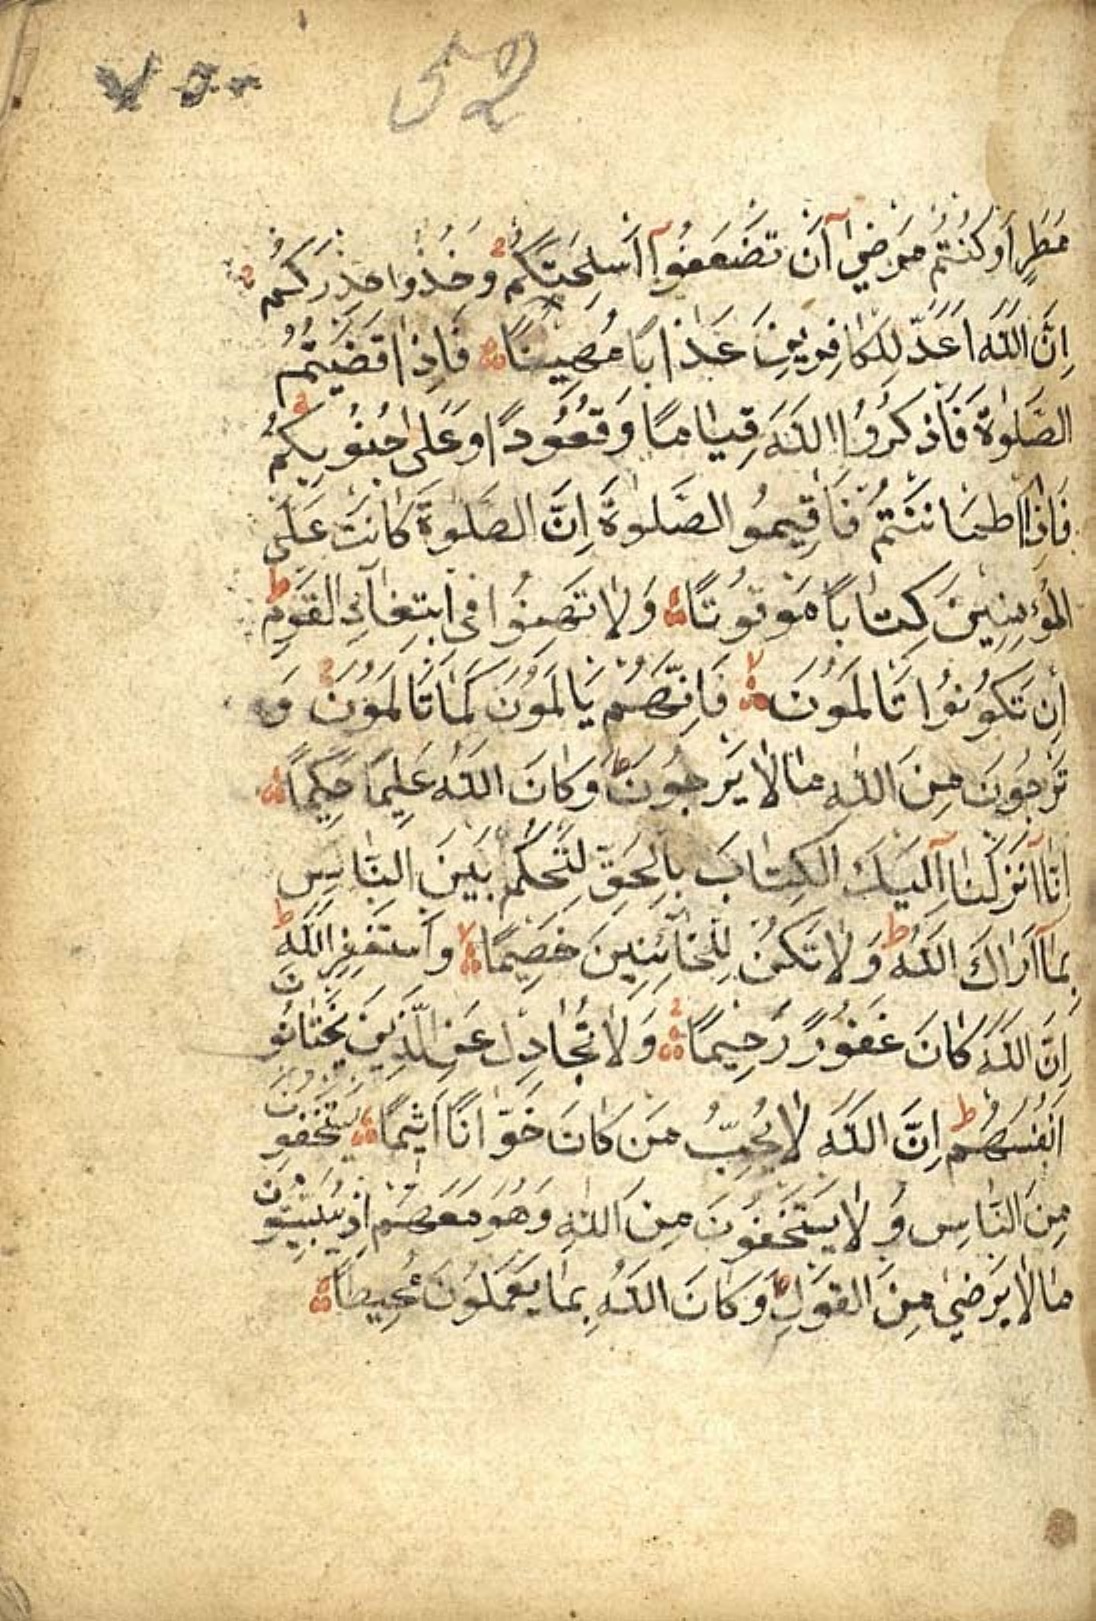 52
مَطَرٍ اَوْ كُنْتُمْ مَرْضٰىٓ اَنْ تَضَعُوٓا اَسْلِحَتَكُمْ وَخُذُوا حِذْرَكُمْ
اِنَّ اللّٰهَ اَعَدَّ لِلْكَافِرِينَ عَذَابًا مُهِينًا فَاِذَا قَضَيْتُمُ
الصَّلٰوةَ فَاذْكُرُوا اللّٰهَ قِيَامًا وَقُعُودًا وَعَلٰى جُنُوبِكُمْ
فَاِذَا اطْمَاْنَنْتُمْ فَاَقِيمُوا الصَّلٰوةَ اِنَّ الصَّلٰوةَ كَانَتْ عَلَى
الْمُؤْمِنِينَ كِتَابًا مَوْقُوتًا وَلَا تَهِنُوا فِى ابْتِغَآءِ الْقَوْمِ
اِنْ تَكُونُوا تَاْلَمُونَ فَاِنَّهُمْ يَاْلَمُونَ كَمَا تَاْلَمُونَ وَ
تَرْجُونَ مِنَ اللّٰهِ مَا لَا يَرْجُونَ وَكَانَ اللّٰهُ عَلِيمًا حَكِيمًا
اِنَّآ اَنْزَلْنَآ اِلَيْكَ الْكِتَابَ بِالْحَقِّ لِتَحْكُمَ بَيْنَ النَّاسِ
بِمَآ اَرَاكَ اللّٰهُ وَلَا تَكُنْ لِلْخَآئِنِينَ خَصِيمًا وَاسْتَغْفِرِ اللّٰهَ
اِنَّ اللّٰهَ كَانَ غَفُورًا رَحِيمًا وَلَا تُجَادِلْ عَنِ الَّذِينَ يَخْتَانُونَ
اَنْفُسَهُمْ اِنَّ اللّٰهَ لَا يُحِبُّ مَنْ كَانَ خَوَّانًا اَثِيمًا يَسْتَخْفُونَ
مِنَ النَّاسِ وَلَا يَسْتَخْفُونَ مِنَ اللّٰهِ وَهُوَ مَعَهُمْ اِذْ يُبَيِّتُونَ
مَا لَا يَرْضٰى مِنَ الْقَوْلِ وَكَانَ اللّٰهُ بِمَا يَعْمَلُونَ مُحِيطًا